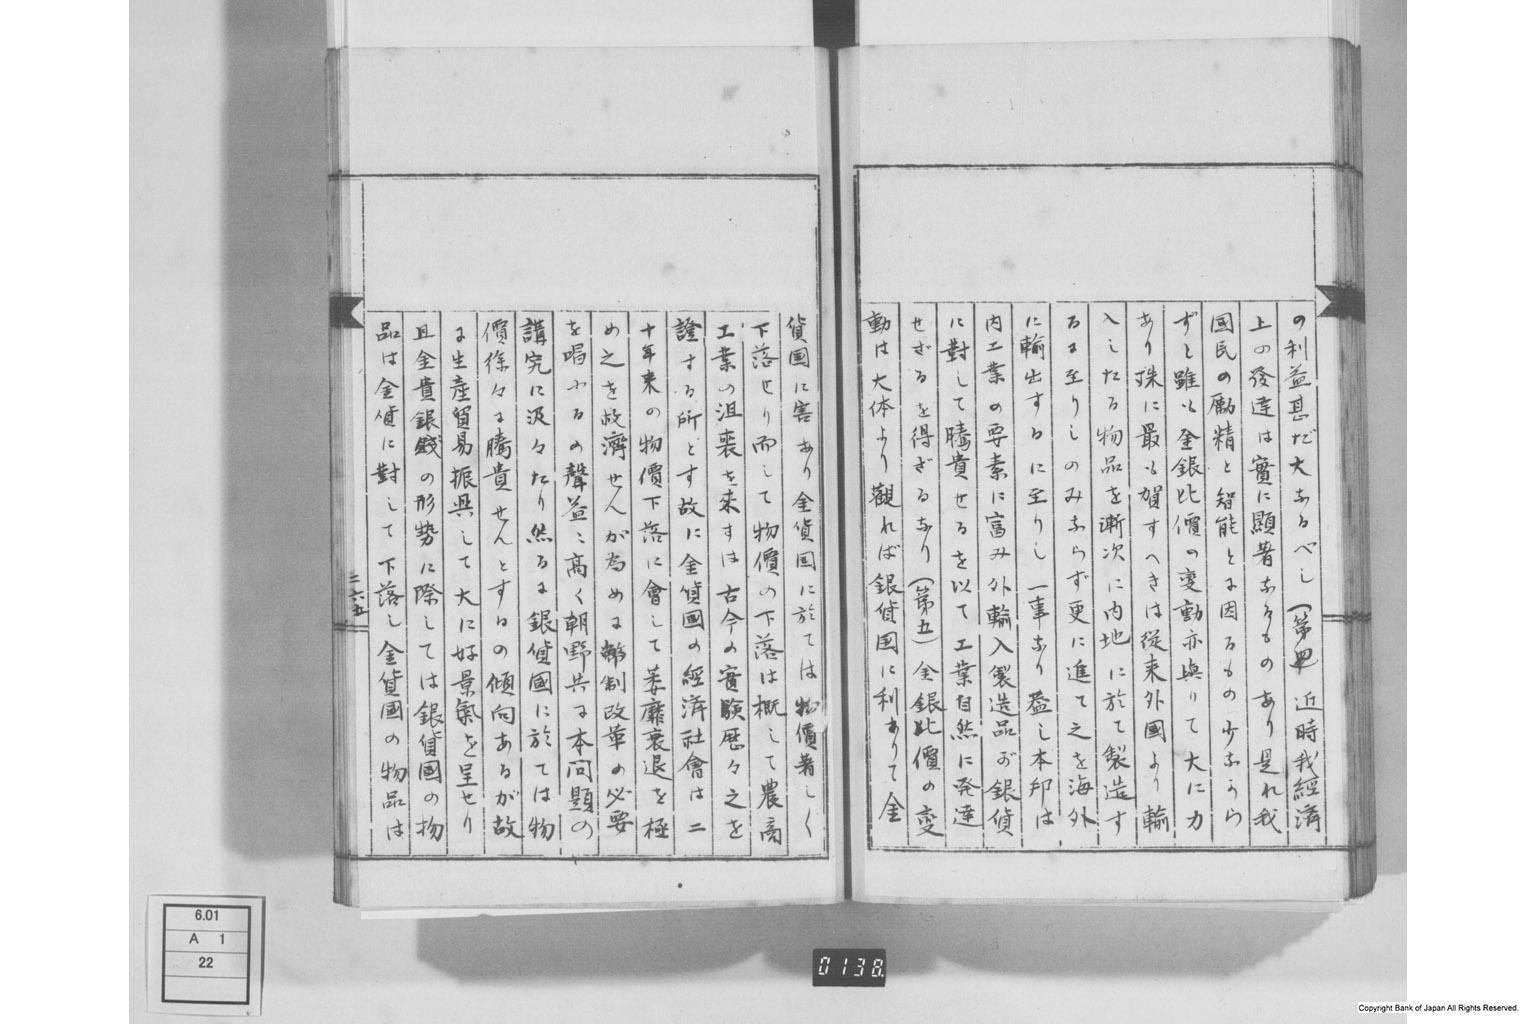 の利益甚だ大なるべし(第四)近時我經済
上の發達は實に顯著なるものあり是れ我
國民の勵精と智能とに因るもの少なから
ずと雖も金銀比價の変動亦與りて大に力
あり殊に最も賀すへきは從来外國より輸
入したる物品を漸次に内地に於て製造す
るに至りしのみならず更に進て之を海外
に輸出するに至りし一事なり蓋し本邦は
内工業の要素に富み外輸入製造品が銀貨
に對して騰貴せるを以て工業自然に発達
せざるを得ざるなり(第五)金銀比價の變
動は大体より觀れば銀貨国に利ありて金
貨國に害あり金貨国に於ては物價著しく
下落せり而して物價の下落は概して農商
工業の沮喪を来すは古今の實驗歴々之を
證する所とす故に金貨國の經済社會は二
十年来の物價下落に會して萎靡衰退を極
め之を救濟せんが為めに幣制改革の必要
を唱ふるの聲益々高く朝野共に本问題の
講究に汲々たり然るに銀貨國に於ては物
價徐々に騰貴せんとするの傾向あるが故
に生產貿易振興して大に好景氣を呈せり
且金貴銀賤の形勢に際しては銀貨國の物
品は金貨に對して下落し金貨國の物品は
二六五
6.01
A 1
22
0138.
Copyright Bank of Japan All Rights Reserved.